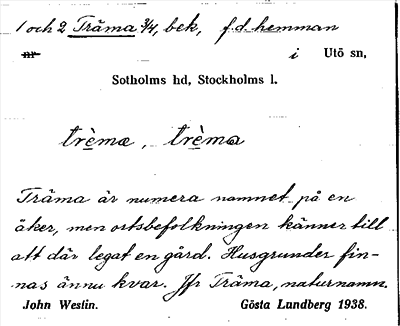 1 och 2 Träma 3/4, bek, f.d. hemman
nr i Utö sn,
Sotholms hd, Stockholms l.
trèmæ, trèma
Träma är numera namnet på en
åker, men ortsbefolkningen känner till
att där legat en gård. Husgrunder fin-
nas ännu kvar. Jfr Träma, naturnamn.
John Westin. Gösta Lundberg 1938.